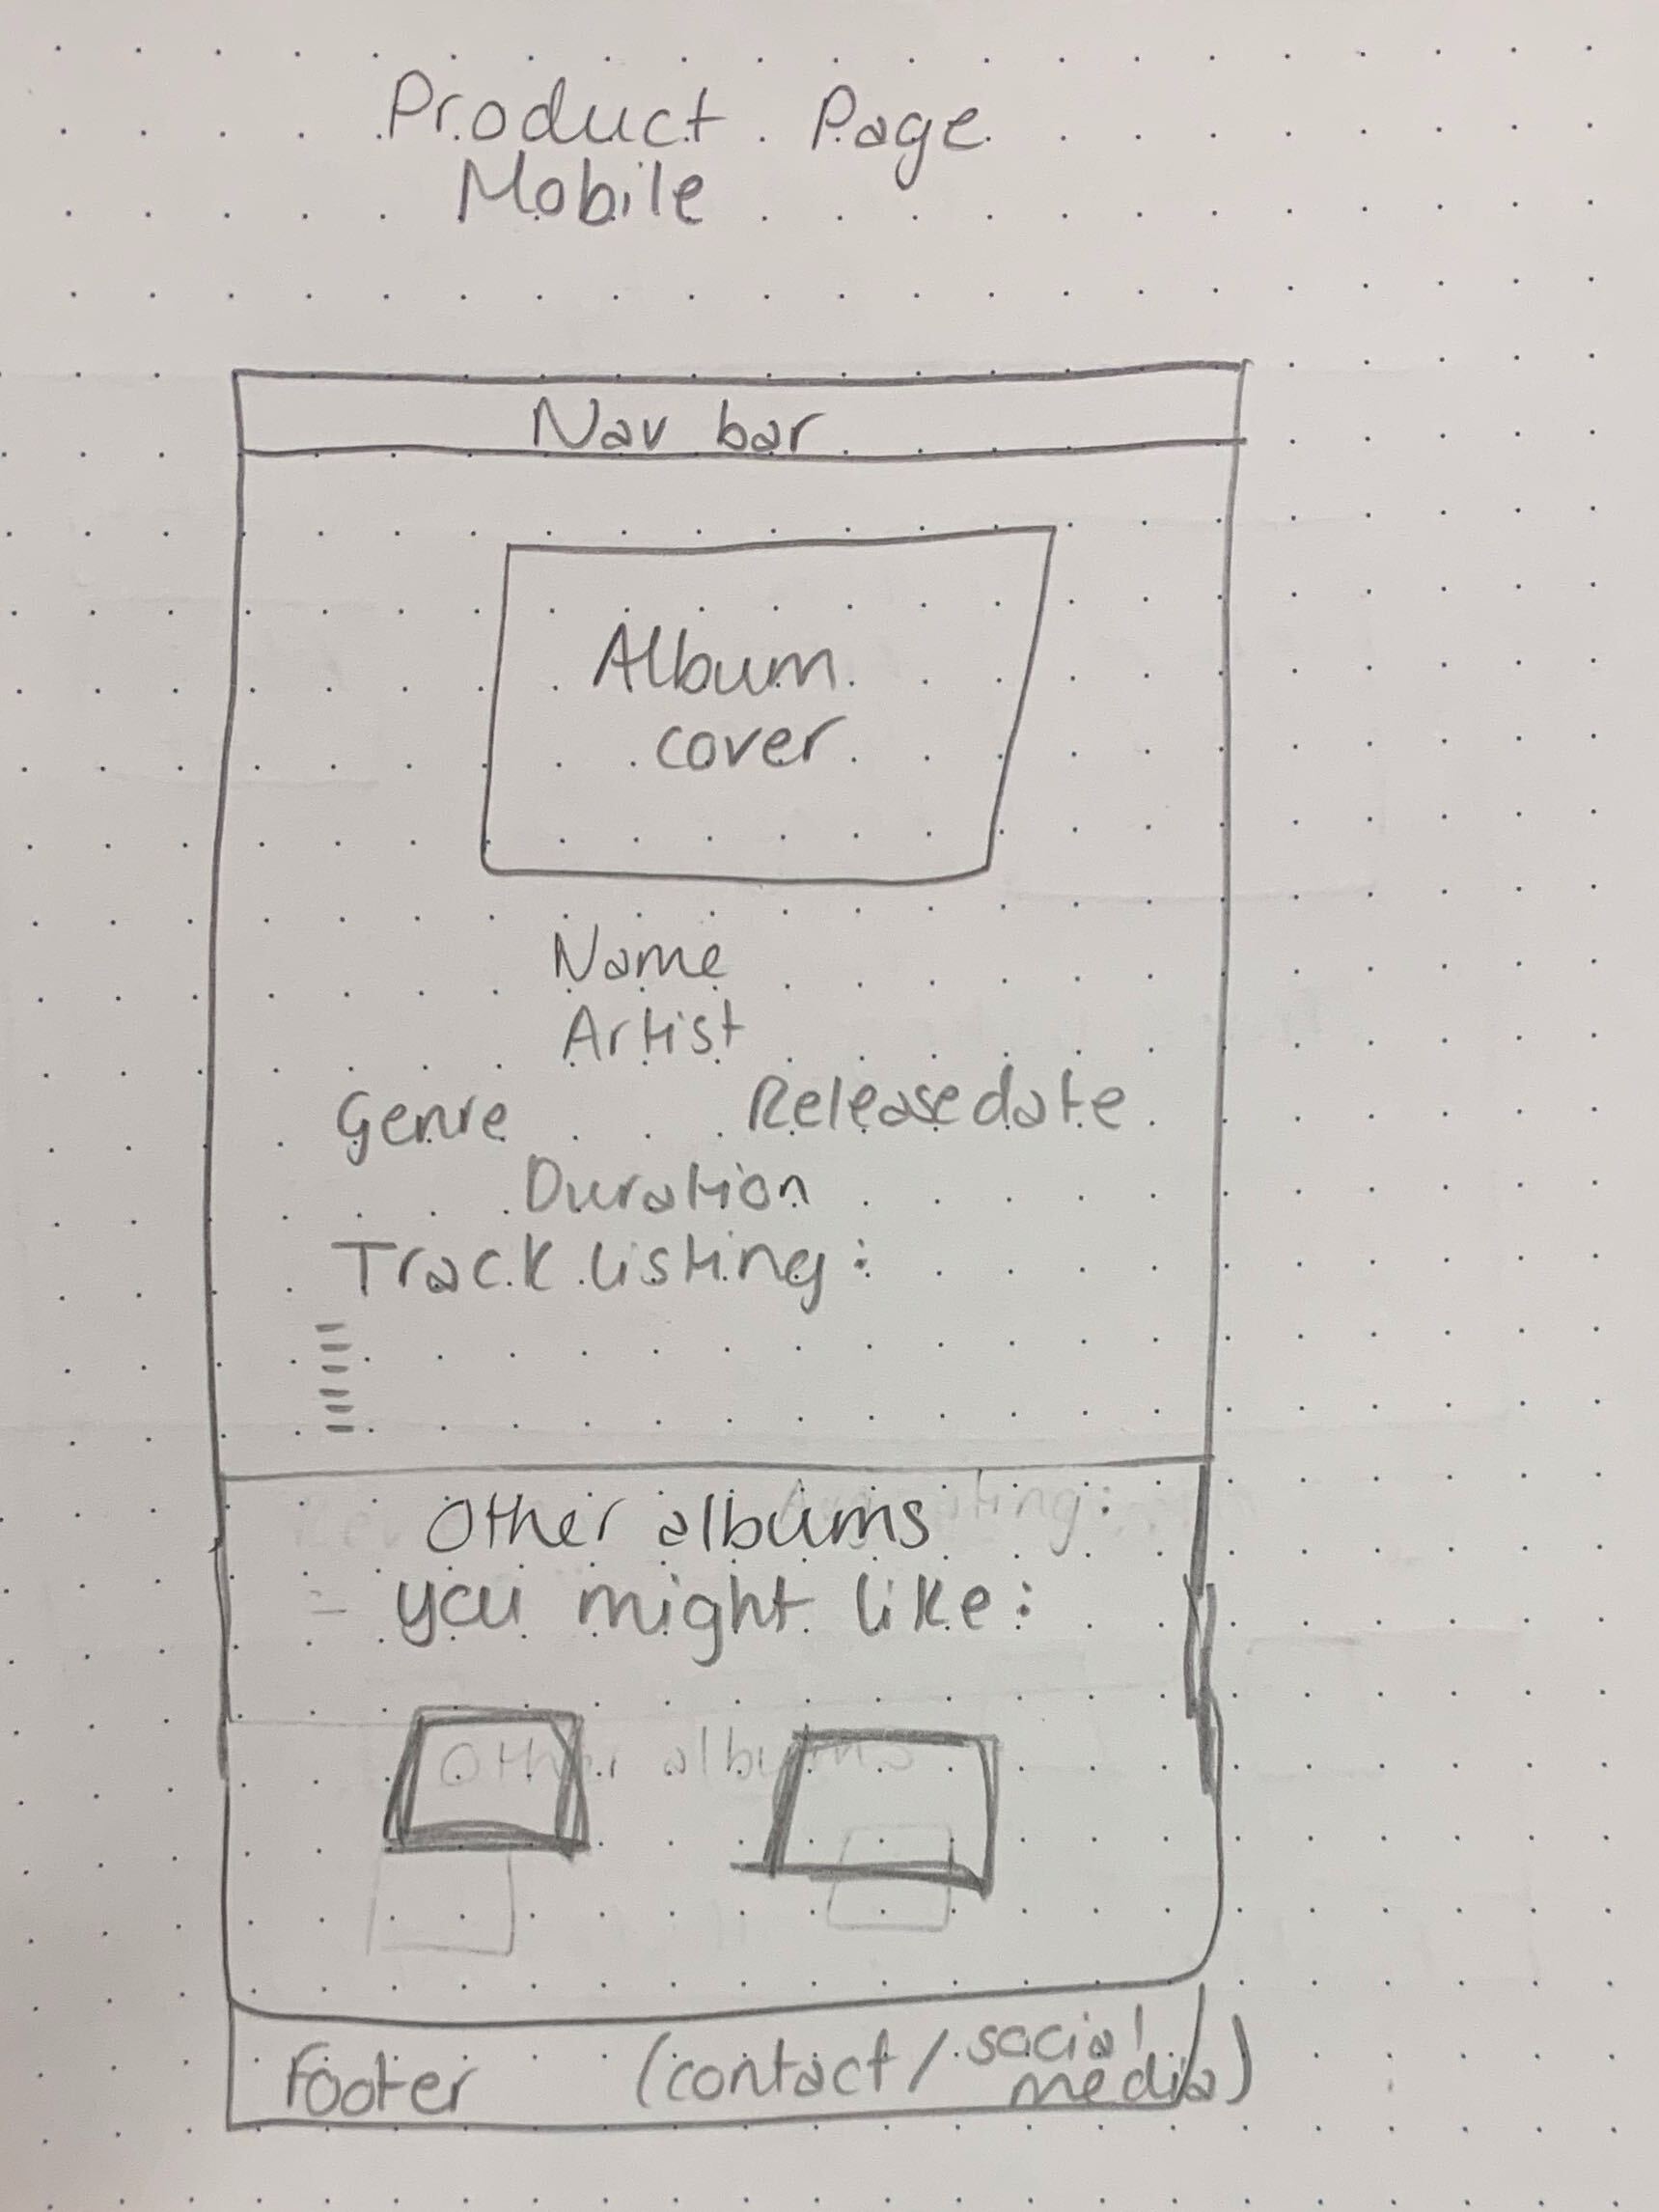 Product Page
Mobile
Nav bar
Album
cover
Name
Artist
Genre Release date
Duration
Track listing:
Other albums
you might like:
Other albums
Footer (contact/social
media)